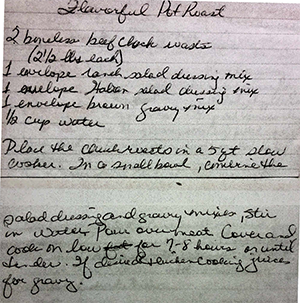 Flavorful Pot Roast
2 boneless beef chuck roasts
(2 1/2 lbs each)
1 envelope ranch salad dressing mix
1 envelope Italian salad dressing mix
1 envelope brown gravy mix
1/2 cup water
Place the chuck roasts in a 5 qt slow
cooker. In a small bowl, combine the
salad dressing and gravy mixes, stir
in water. Pour over meat. Cover and
cook on low for 7-8 hours or until
tender. If desired thicken cooking juices
for gravy.